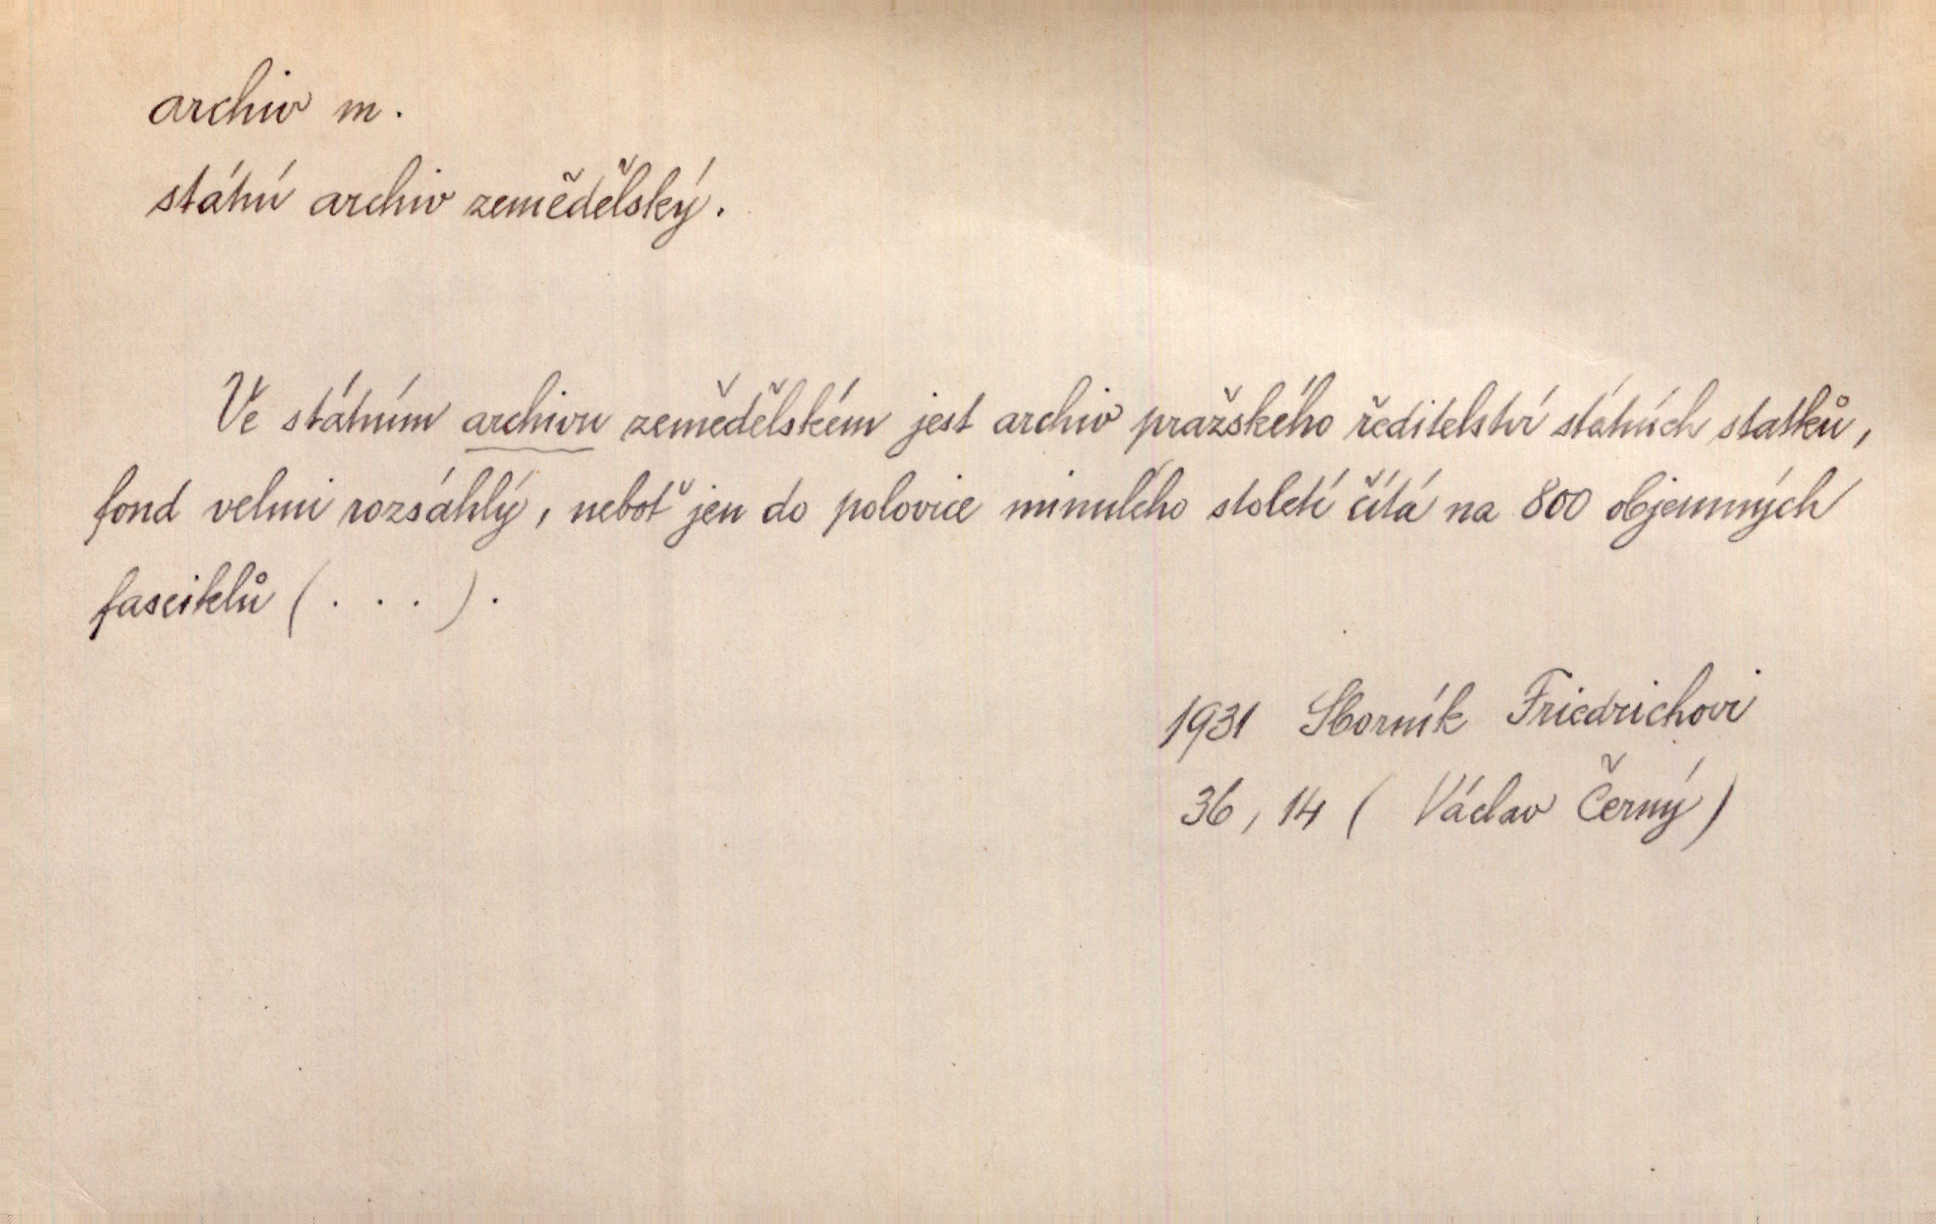 archiv m.
státní archiv zemědělský.
Ve státním archivu zemědělském jest archiv pražského ředitelství státních statků,
fond velmi rozsáhlý, neboť jen do polovice minulého století čítá na 800 objemných
fasciklů (. . .).
1931 Sborník Friedrichovi
36, 14 ( Václav Černý)